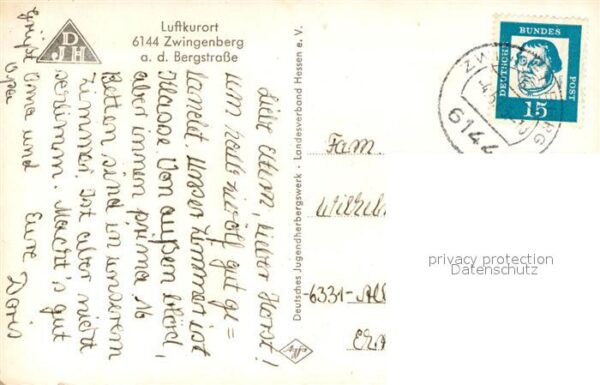 DJH
Luftkurort
6144 Zwingenberg
a. d. Bergstraße
Liebe Eltern, lieber Horst!
um halb gut ge=
landet. Unser Zimmer ist
klasse. Von außen blöd,
aber innen prima. 16
Betten sind in unserem
Zimmer. Ist aber nicht
schlimm. Macht's gut
Grüßt Oma und Opa
Eure Doris
Deutsches Jugendherbergswerk · Landesverband Hessen e. V.
Agfa
Fam.
Wilhel
6331-
DEUTSCHE
BUNDES
POST
15
ZW RG
6144
privacy protection
Datenschutz